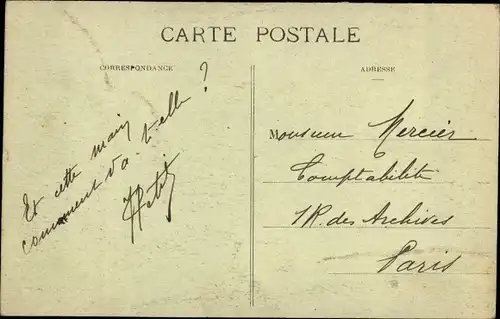 CARTE POSTALE
CORRESPONDANCE
ADRESSE
Et cette main
comment va t'elle ?
Petit
Monsieur Mercier
Comptabilité
1 R. des Archives
Paris